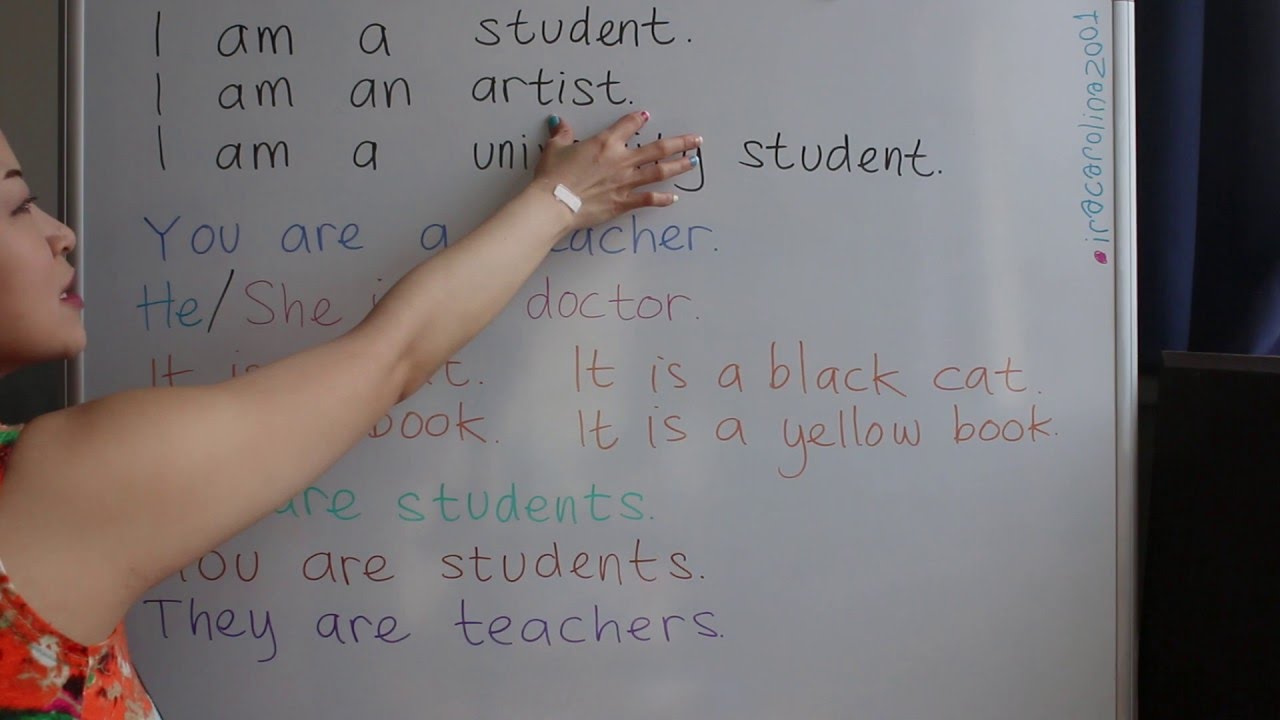 I am a student.
I am an artist.
I am a university student.
You are a teacher.
He/She is doctor.
It is
It is a black cat.
book.
It is a yellow book.
are students.
You are students.
They are teachers.